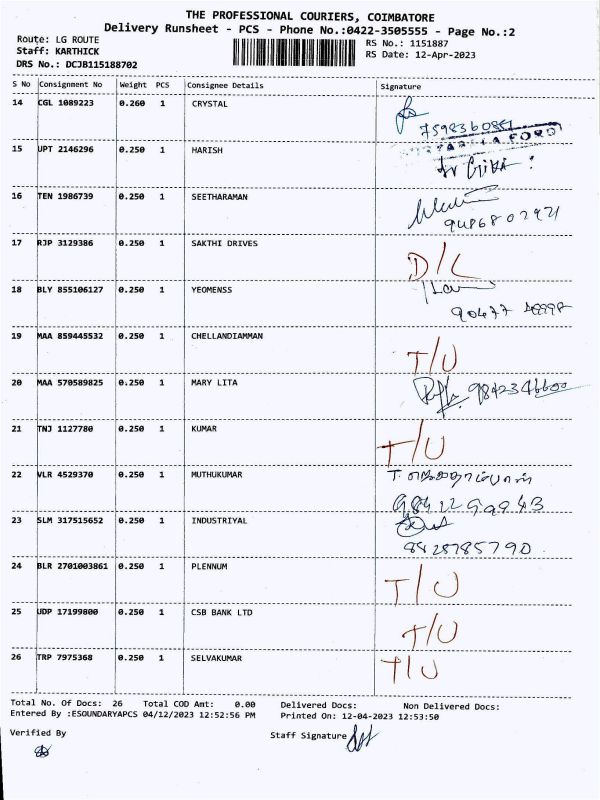 THE PROFESSIONAL COURIERS, COIMBATORE
Delivery Runsheet - PCS - Phone No.:0422-3505555 - Page No.:2
Route: LG ROUTE
Staff: KARTHICK
DRS No.: DCJB115188702
RS No.: 1151887
RS Date: 12-Apr-2023
S No Consignment No Weight PCS Consignee Details Signature
14 CGL 1089223 0.260 1 CRYSTAL
15 UPT 2146296 0.250 1 HARISH
16 TEN 1986739 0.250 1 SEETHARAMAN
17 RJP 3129386 0.250 1 SAKTHI DRIVES D/L
18 BLY 855106127 0.250 1 YEOMENSS
19 MAA 859445532 0.250 1 CHELLANDIAMMAN T/U
20 MAA 570589825 0.250 1 MARY LITA 9842346600
21 TNJ 1127780 0.250 1 KUMAR T/U
22 VLR 4529370 0.250 1 MUTHUKUMAR
23 SLM 317515652 0.250 1 INDUSTRIYAL
24 BLR 2701003861 0.250 1 PLENNUM T/U
25 UDP 17199800 0.250 1 CSB BANK LTD T/U
26 TRP 7975368 0.250 1 SELVAKUMAR T/U
Total No. Of Docs: 26 Total COD Amt: 0.00 Delivered Docs: Non Delivered Docs:
Entered By :ESOUNDARYAPCS 04/12/2023 12:52:56 PM Printed On: 12-04-2023 12:53:50
Verified By Staff Signature